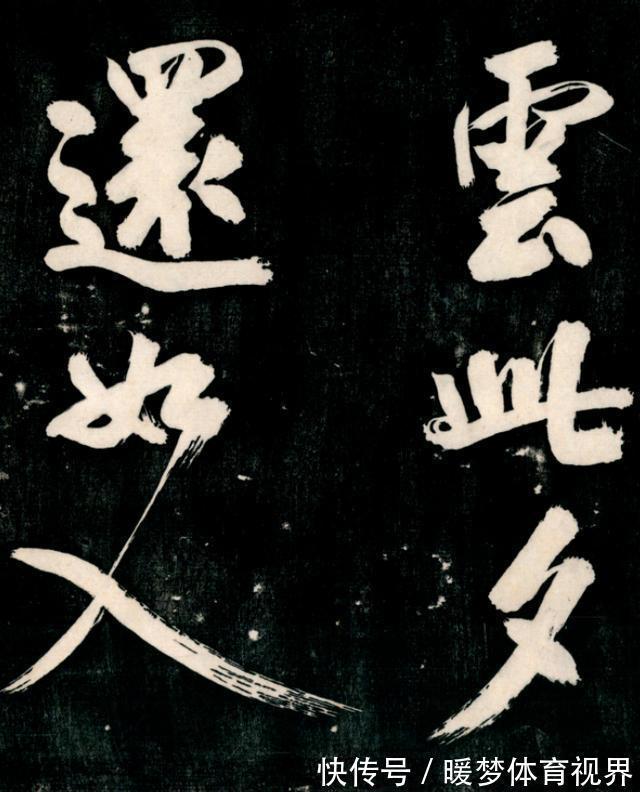 雲此夕
還如入
快传号 / 暖梦体育视界